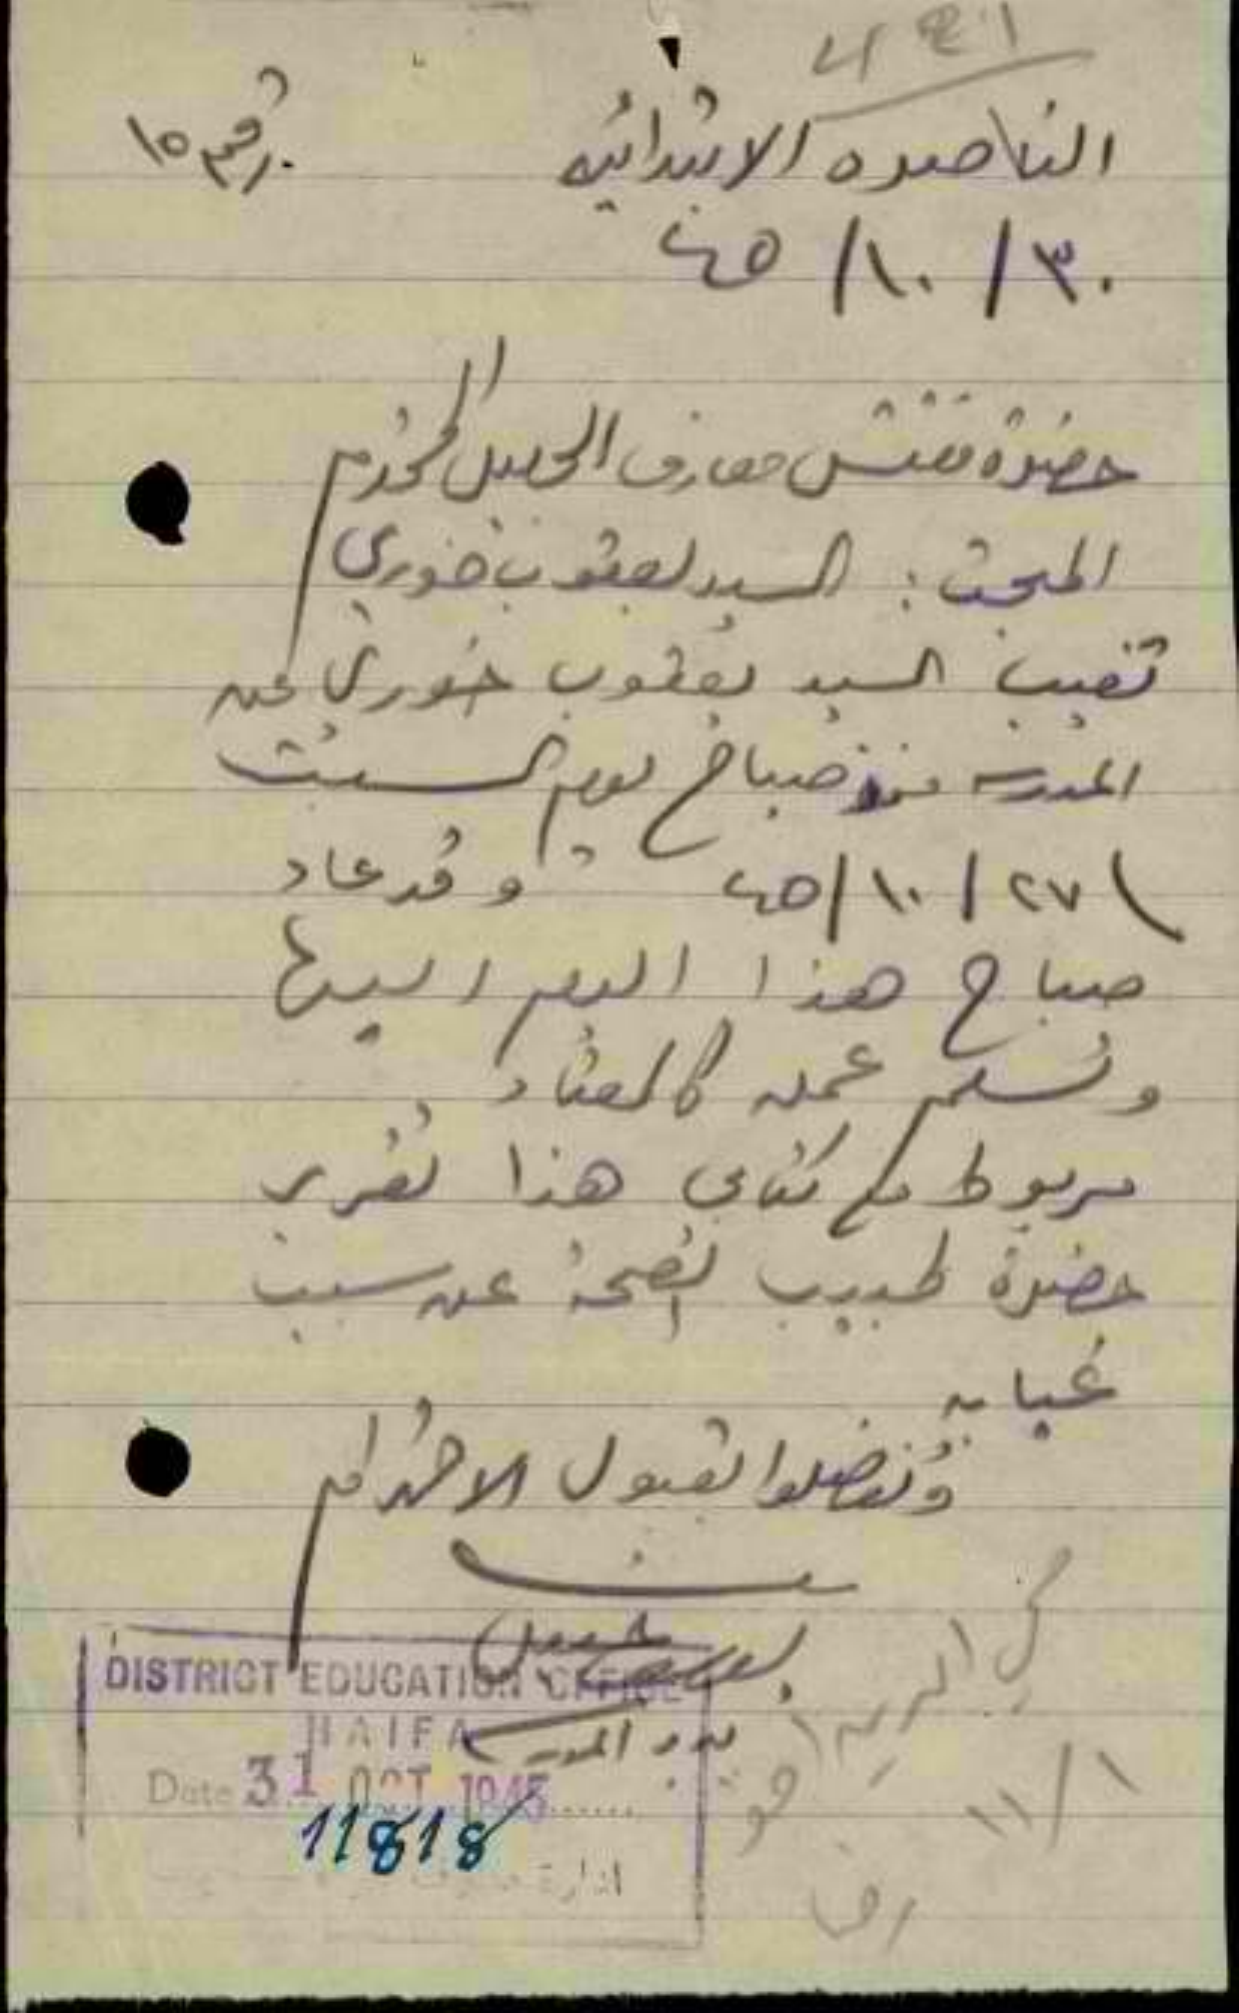 الناصره الابتدائيه
رقم ١٥
٣٠/١٠/٤٥
حضرة مفتش معارف الجليل المحترم
المبحث: السيد يعقوب خوري
تغيب السيد يعقوب خوري عن
المدرسه منذ صباح يوم السبت
٢٧/١٠/٤٥ وقد عاد
صباح هذا اليوم اليها
وتسلم عمله كالمعتاد
مربوط مع كتابي هذا تقرير
حضرة طبيب الصحة عن سبب
غيابه
وتفضلوا بقبول الاحترام
مدير المدرسه
DISTRICT EDUCATION OFFICE
HAIFA
Date 31 OCT 1945
11818
ادارة
١١/١